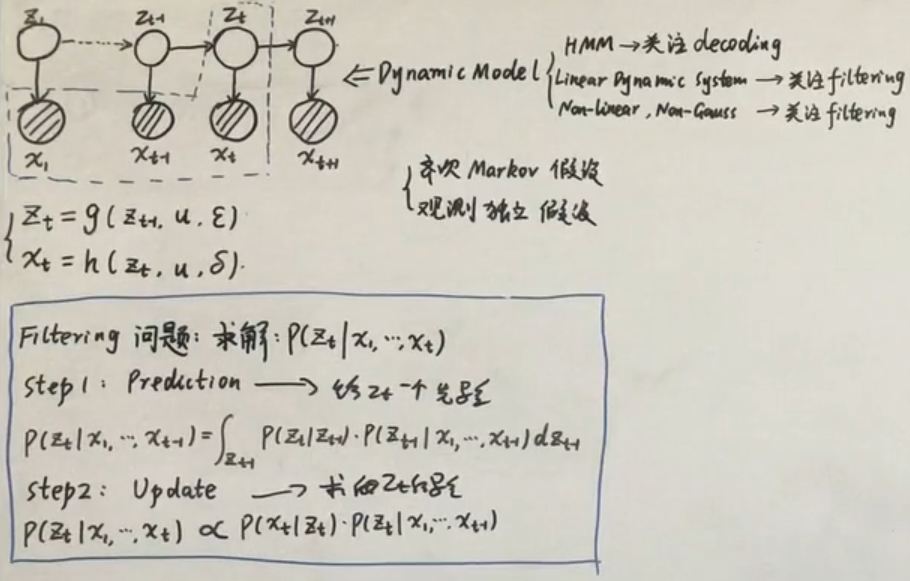 z₁ z_{t-1} z_t z_{t+1}
x₁ x_{t-1} x_t x_{t+1}
⇐ Dynamic Model
HMM → 关注 decoding
Linear Dynamic System → 关注 filtering
Non-linear, Non-Gauss → 关注 filtering
齐次 Markov 假设
观测独立 假设
z_t = g(z_{t-1}, u, ε)
x_t = h(z_t, u, δ).
Filtering 问题: 求解: P(z_t|x₁, ⋯, x_t)
Step1: Prediction → 给 z_t 一个 先验
P(z_t|x₁, ⋯, x_{t-1}) = ∫_{z_{t-1}} P(z_t|z_{t-1})·P(z_{t-1}|x₁, ⋯, x_{t-1}) dz_{t-1}
Step2: Update → 求 z_t
P(z_t|x₁, ⋯, x_t) ∝ P(x_t|z_t)·P(z_t|x₁, ⋯, x_{t-1})